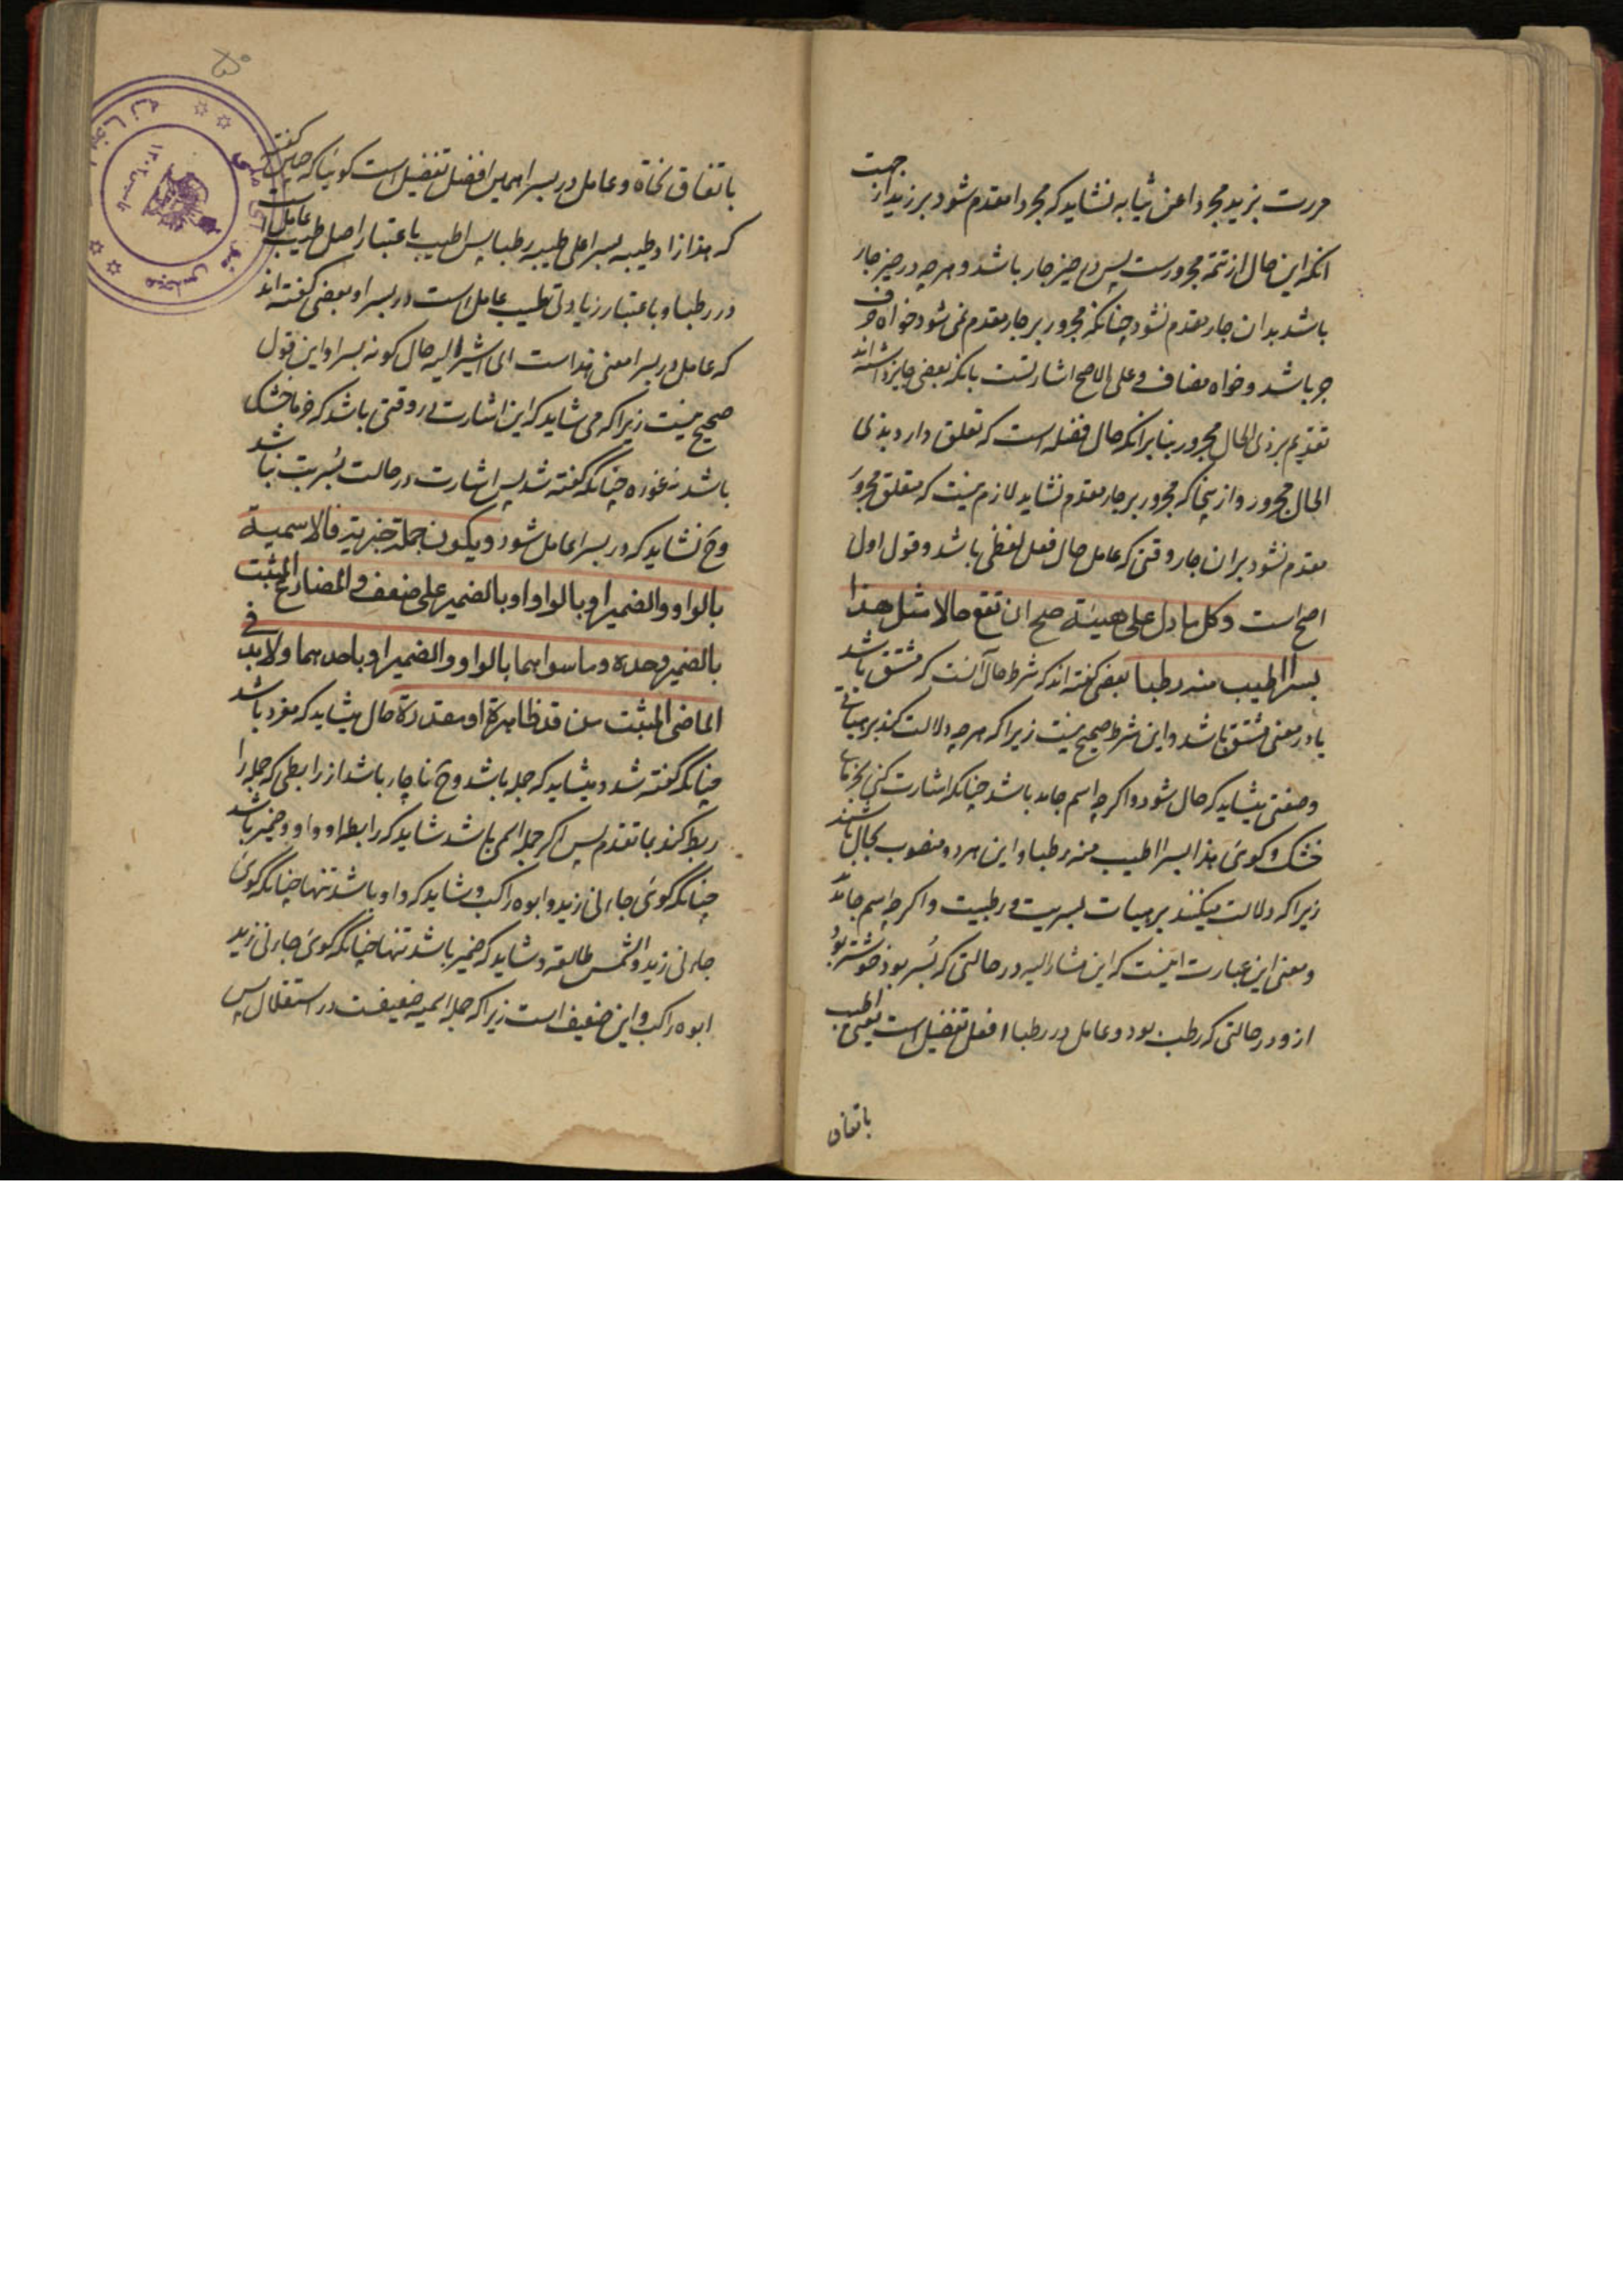 مررت بزید مجردا عن ثیابه نشاید که مجردا مقدم شود بر زید از جهت
انکه این حال از تتمه مجرورست پس در حیز جار باشد و هرچه در حیز جار
باشد بدان جار مقدم نشود چنانکه مجرور بر جار مقدم نمی شود خواه حرف
جر باشد و خواه مضاف و علی الاصح اشارتست بانکه بعضی جایز داشته اند
تقدیم بر ذی الحال مجرور بنا بر انکه حال فضله است که تعلق دارد بذی
الحال مجرور و از ینجا که مجرور بر جار مقدم نشاید لازم نیست که متعلق مجرور
مقدم نشود بران جار وقتی که عامل حال فعل لفظی باشد و قول اول
اصح است وکل ما دل علی هیئة صح ان تقع حالا مثل هذا
بسرا اطیب منه رطبا بعضی گفته اند که شرط حال آنست که مشتق باشد
یا در معنی مشتق باشد و این شرط صحیح نیست زیرا که هرچه دلالت کند بر هیاتی
و صفتی بشاید که حال شود و اگرچه اسم جامد باشد چنانکه اشارت کنی بخرمای
خشک و کوئی هذا بسرا اطیب منه رطبا و این هر دو منصوب بحال باشند
زیرا که دلالت میکنند بر هیات بسریت و رطبیت و اگرچه اسم جامد
و معنی این عبارت اینست که این مشار الیه در حالتی که بُسر بود خوشتر بود
ازو در حالتی که رطب بود و عامل در رطبا افعل تفضیل است یعنی اطیب
باتفاق
باتفاق نحاة و عامل در بسرا همین افضل تفضیل است کوئیا که چنین گفته
که هذا زاد طیبه بسرا علی طیبه رطبا پس اطیب باعتبار اصل طیب عامل است
در رطبا و باعتبار زیادتی طیب عامل است در بسرا و بعضی گفته اند
که عامل در بسرا معنی هذا است ای اشیر الیه حال کونه بسرا و این قول
صحیح نیست زیرا که می شاید که این اشارت در وقتی باشد که خرما خشک
باشد نه غوره چنانکه گفته شد پس اشارت در حالت بُسریت نباشد
وح نشاید که در بسرا عامل شود ویکون جملة خبریة فالاسمیة
بالواو والضمیر او بالواو او بالضمیر علی ضعف والمضارع المثبت
بالضمیر وحده وما سواهما بالواو والضمیر او باحدهما ولابد فی
الماضی المثبت من قد ظاهرة او مقدرة حال بشاید که مفرد باشد
چنانکه گفته شد و بشاید که جمله باشد وح ناچار باشد از رابطی که جمله را
ربط کند بما تقدم پس اکر جمله اسمی باشد شاید که رابط او واو و ضمیر باشد
چنانکه گوئی جاءنی زید و ابوه راکب و شاید که واو باشد تنها چنانکه گوئی
جاءنی زید والشمس طالعة و شاید که ضمیر باشد تنها چنانکه گوئی جاءنی زید
ابوه راکب و این ضعیف است زیرا که جمله اسمیه ضعیفست در استقلال پس